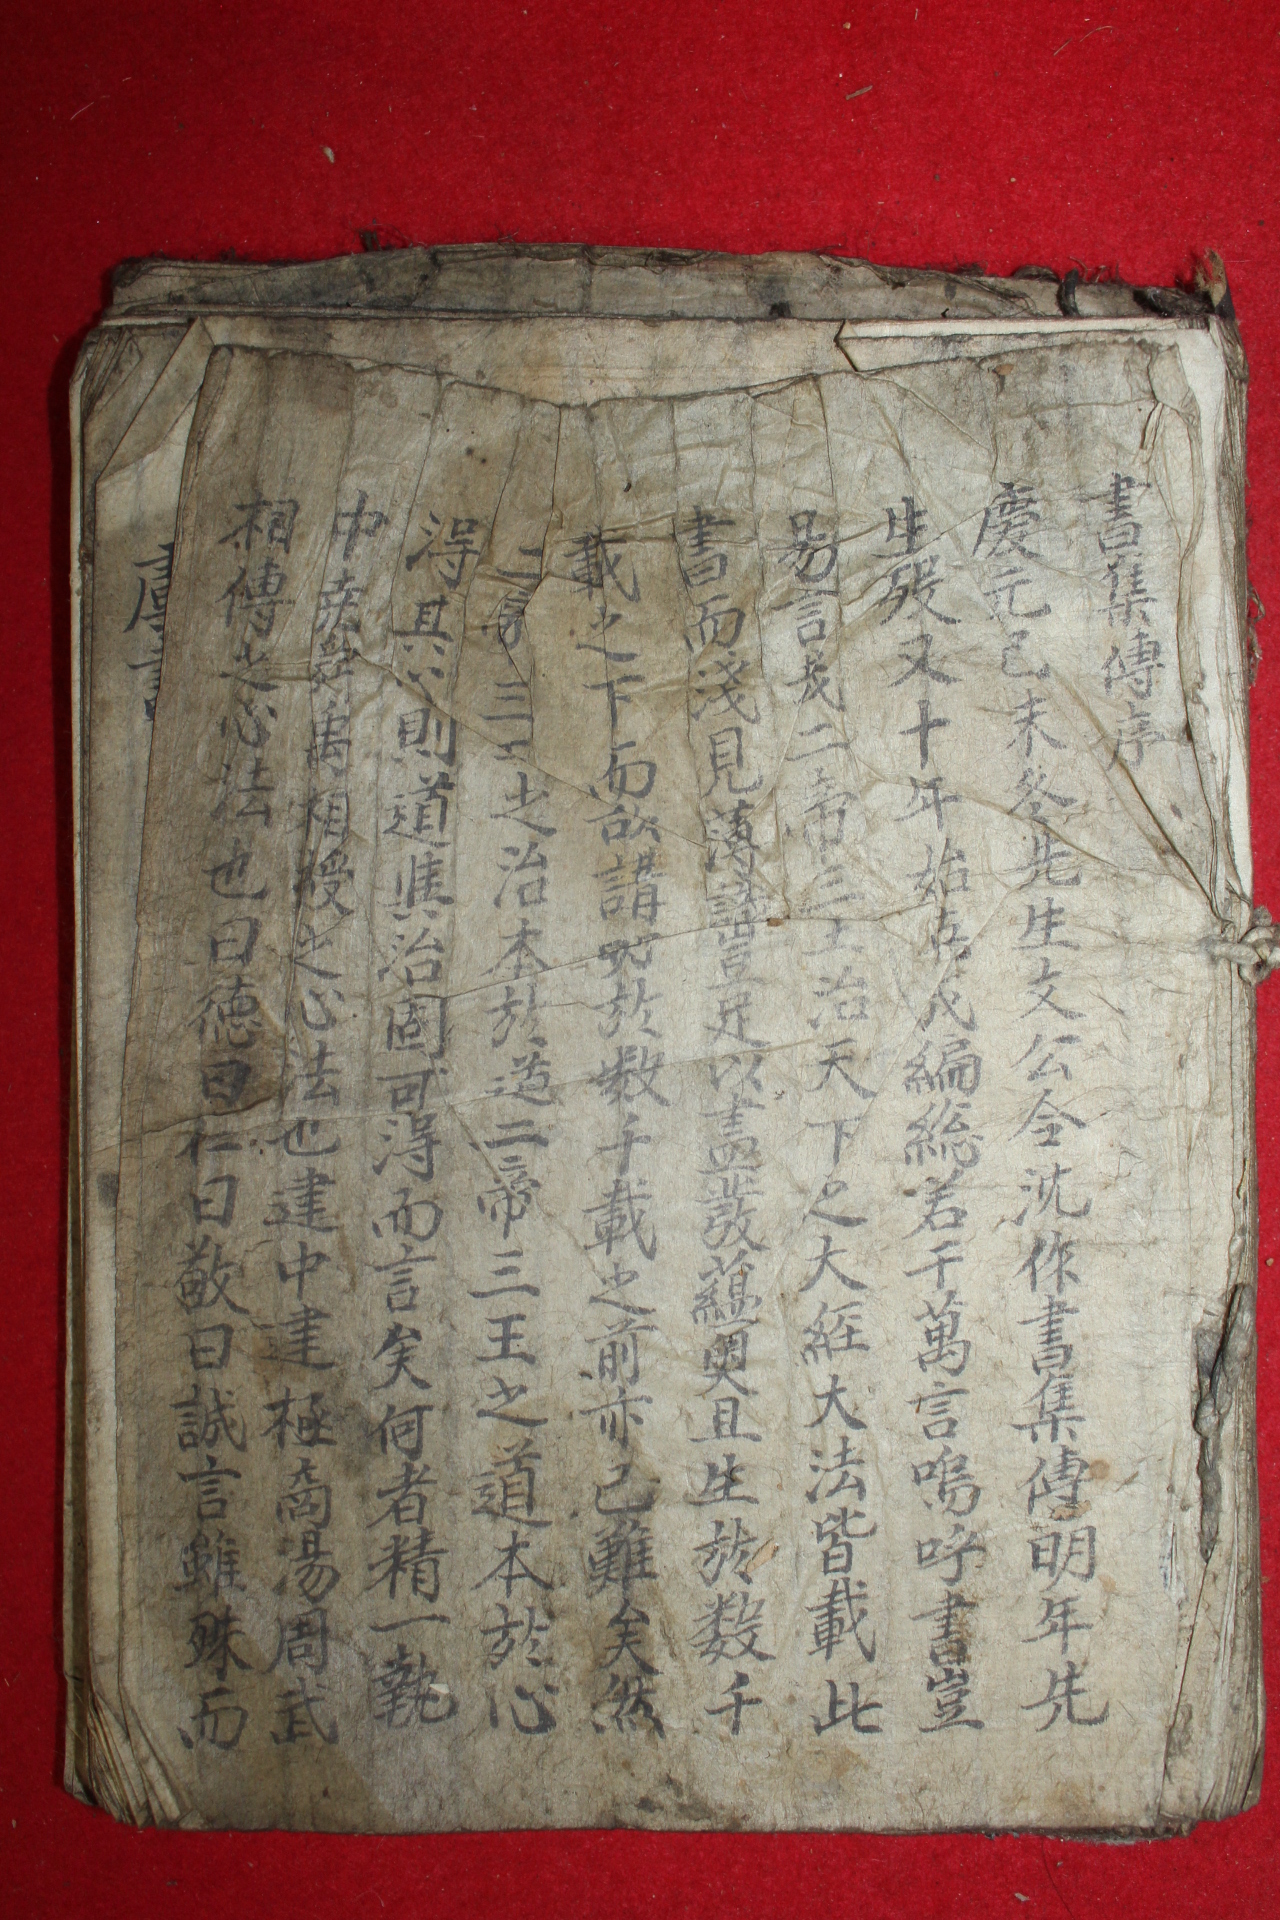 書集傳序
慶元己未冬先生文公令沈作書集傳明年先
生歿又十年始克成編総若干萬言嗚呼書豈
易言哉二帝三王治天下之大經大法皆載此
書而淺見薄識豈足以盡發蘊奧且生於数千
載之下而欲講明於數千載之前亦已難矣然
二帝三王之治本於道二帝三王之道本於心
得其心則道與治固可得而言矣何者精一執
中堯舜禹相授之心法也建中建極商湯周武
相傳之心法也曰德曰仁曰敬曰誠言雖殊而
虞書